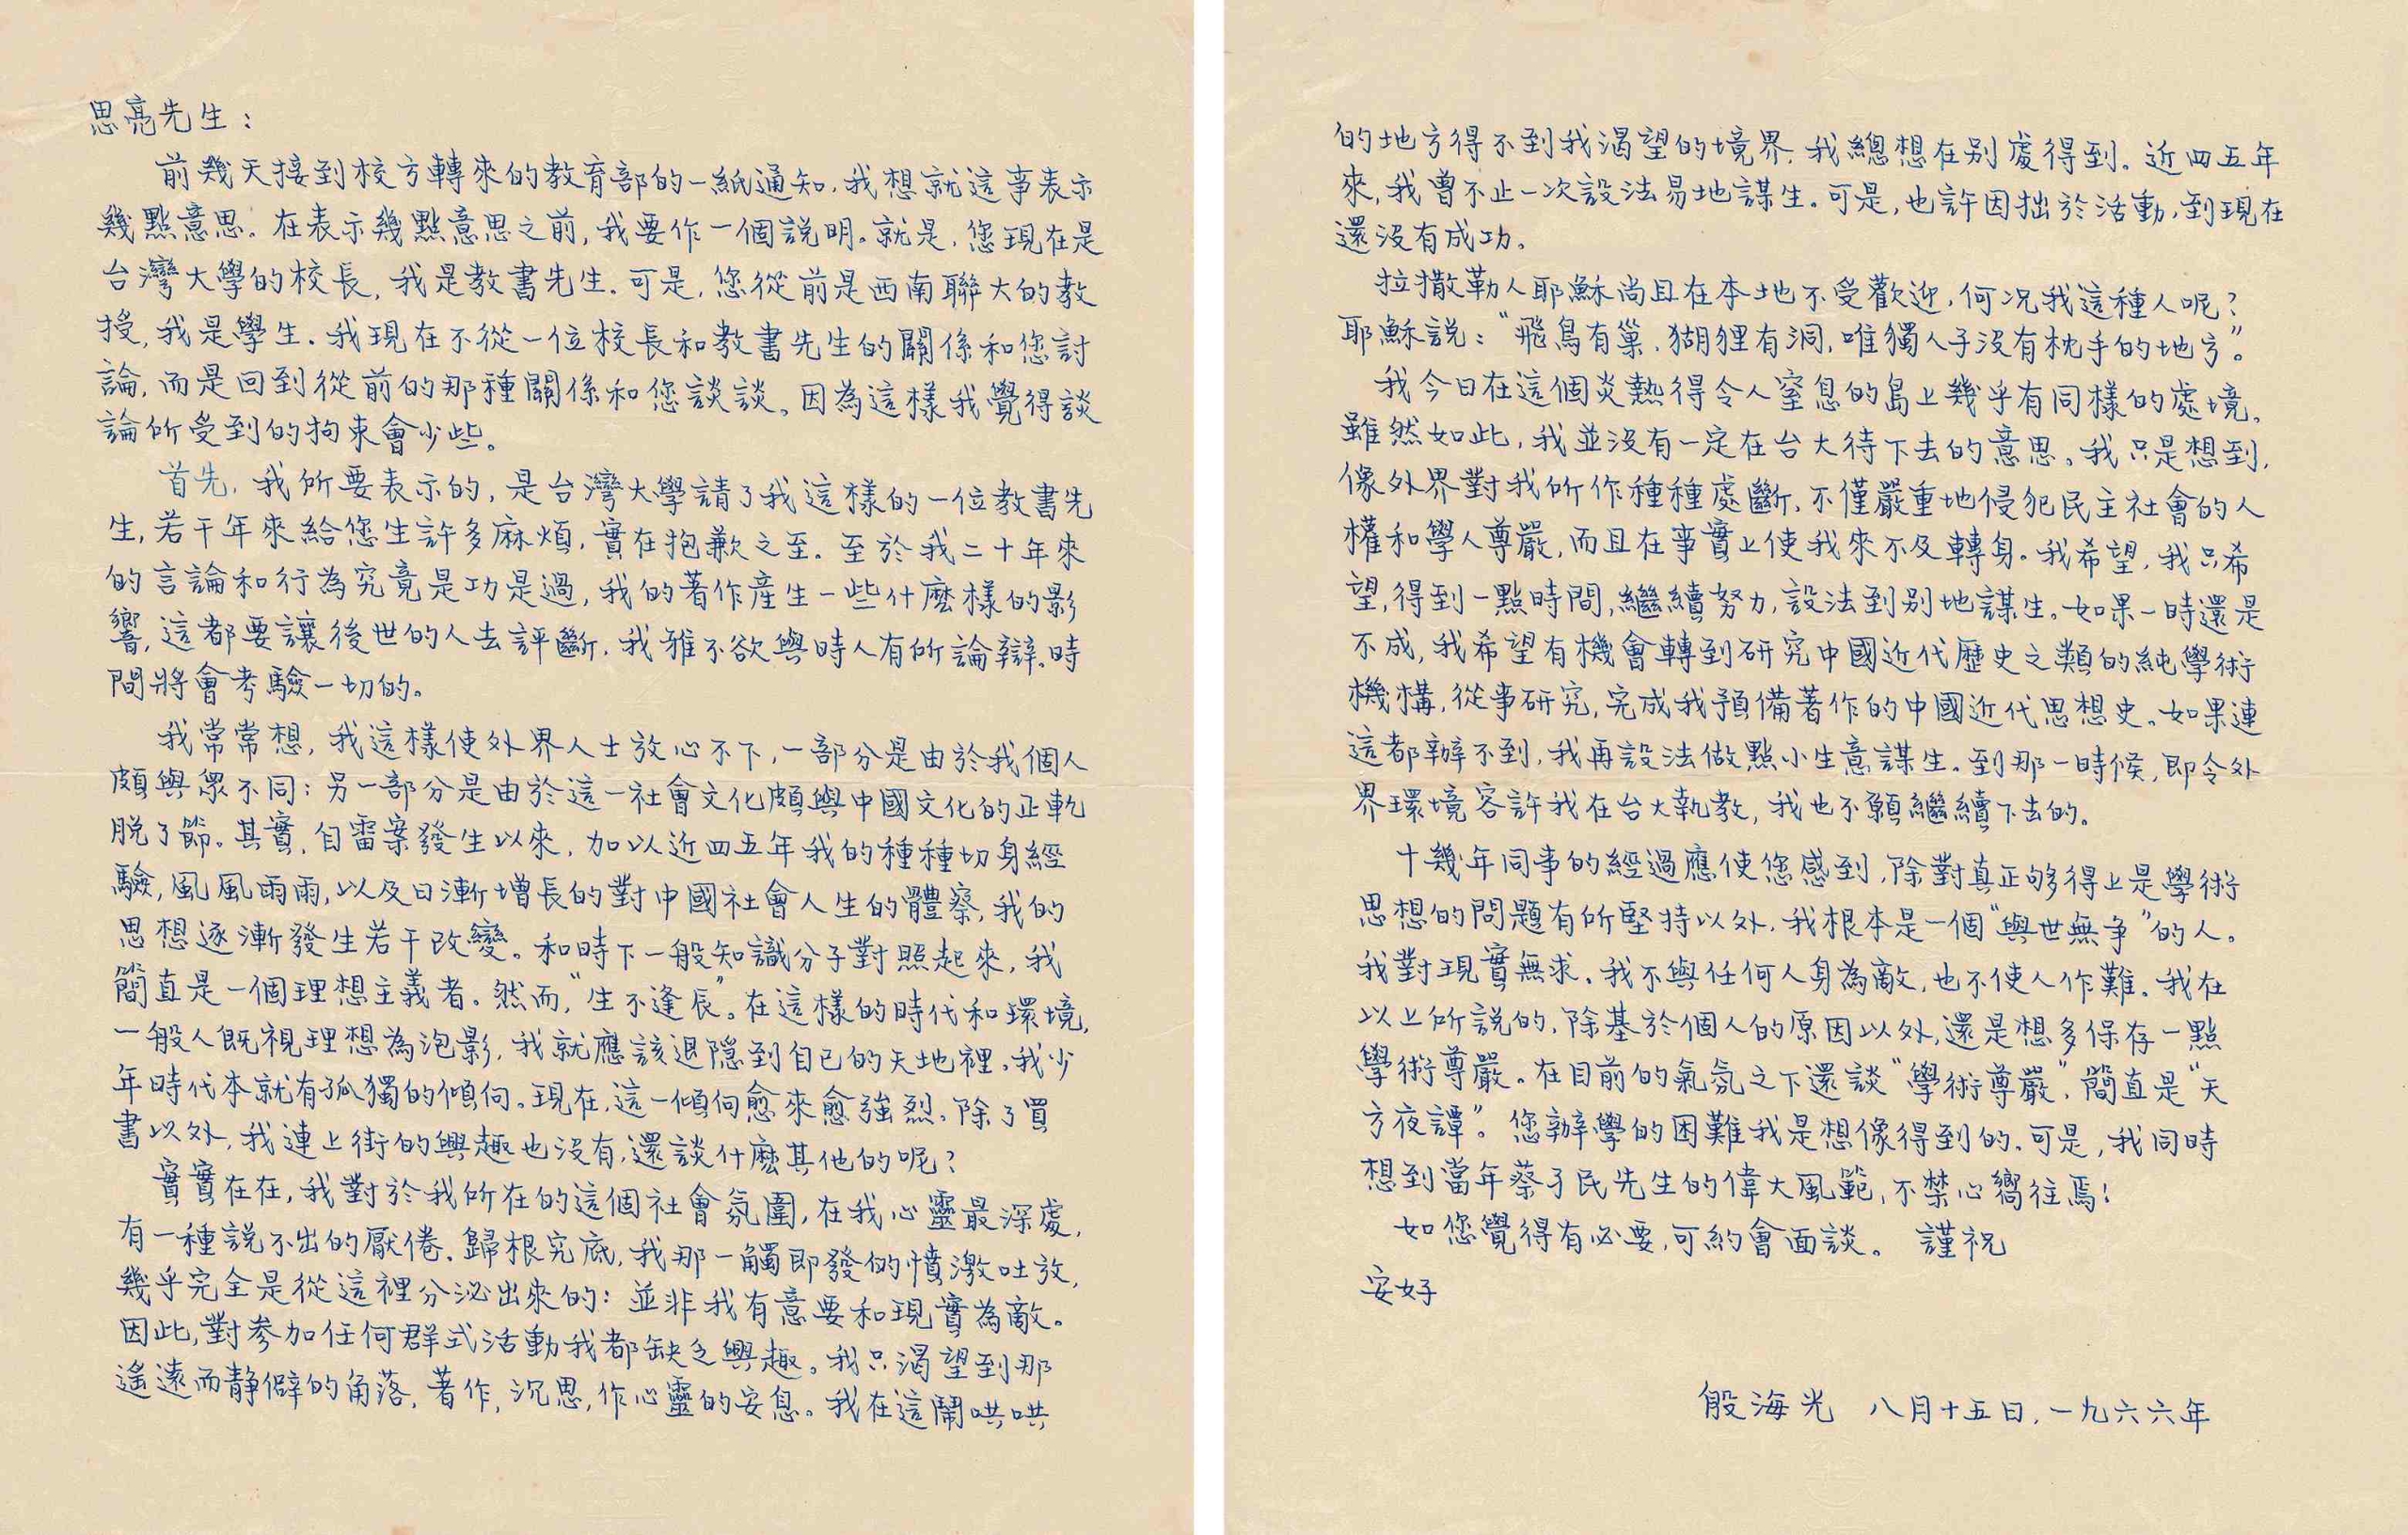 思亮先生：
前幾天接到校方轉來的教育部的一紙通知，我想就這事表示
幾點意思。在表示幾點意思之前，我要作一個說明。就是，您現在是
台灣大學的校長，我是教書先生。可是，您從前是西南聯大的教
授，我是學生。我現在不從一位校長和教書先生的關係和您討
論，而是回到從前的那種關係和您談談。因為這樣我覺得談
論所受到的拘束會少些。
首先，我所要表示的，是台灣大學請了我這樣的一位教書先
生，若干年來給您生許多麻煩，實在抱歉之至。至於我二十年來
的言論和行為究竟是功是過，我的著作產生一些什麼樣的影
響，這都要讓後世的人去評斷。我雅不欲與時人有所論辯。時
間將會考驗一切的。
我常常想，我這樣使外界人士放心不下，一部分是由於我個人
頗與眾不同；另一部分是由於這一社會文化頗與中國文化的正軌
脫了節。其實，自雷案發生以來，加以近四五年我的種種切身經
驗，風風雨雨，以及日漸增長的對中國社會人生的體察，我的
思想逐漸發生若干改變。和時下一般知識分子對照起來，我
簡直是一個理想主義者。然而，“生不逢辰”。在這樣的時代和環境，
一般人既視理想為泡影，我就應該退隱到自己的天地裡。我少
年時代本就有孤獨的傾向。現在，這一傾向愈來愈強烈。除了買
書以外，我連上街的興趣也沒有，還談什麼其他的呢？
實實在在，我對於我所在的這個社會氛圍，在我心靈最深處，
有一種說不出的厭倦。歸根究底，我那一觸即發的憤激吐放，
幾乎完全是從這裡分泌出來的：並非我有意要和現實為敵。
因此，對參加任何群式活動我都缺乏興趣。我只渴望到那
遙遠而靜僻的角落，著作，沉思，作心靈的安息。我在這鬧哄哄
的地方得不到我渴望的境界，我總想在別處得到。近四五年
來，我曾不止一次設法易地謀生。可是，也許因拙於活動，到現在
還沒有成功。
拉撒勒人耶穌尚且在本地不受歡迎，何況我這種人呢？
耶穌說：“飛鳥有巢，猢狸有洞，唯獨人子沒有枕手的地方”。
我今日在這個炎熱得令人窒息的島上幾乎有同樣的處境。
雖然如此，我並沒有一定在台大待下去的意思。我只是想到，
像外界對我所作種種處斷，不僅嚴重地侵犯民主社會的人
權和學人尊嚴，而且在事實上使我來不及轉身。我希望，我只希
望，得到一點時間，繼續努力，設法到別地謀生。如果一時還是
不成，我希望有機會轉到研究中國近代歷史之類的純學術
機構，從事研究，完成我預備著作的中國近代思想史。如果連
這都辦不到，我再設法做點小生意謀生。到那一時候，即令外
界環境容許我在台大執教，我也不願繼續下去的。
十幾年同事的經過應使您感到，除對真正夠得上是學術
思想的問題有所堅持以外，我根本是一個“與世無爭”的人。
我對現實無求。我不與任何人身為敵，也不使人作難。我在
以上所說的，除基於個人的原因以外，還是想多保存一點
學術尊嚴。在目前的氣氛之下還談“學術尊嚴”，簡直是“天
方夜譚”。您辦學的困難我是想像得到的。可是，我同時
想到當年蔡孑民先生的偉大風範，不禁心嚮往焉！
如您覺得有必要，可約會面談。 謹祝
安好
殷海光 八月十五日，一九六六年